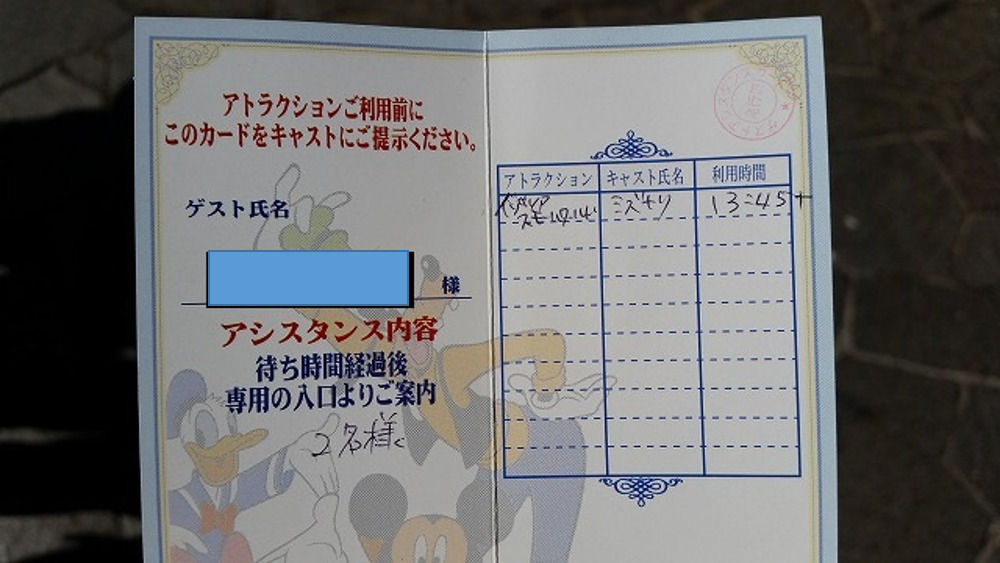 アトラクションご利用前に
このカードをキャストにご提示ください。
ゲスト氏名
様
アシスタンス内容
待ち時間経過後
専用の入口よりご案内
2名様
アトラクション
キャスト氏名
利用時間
イッツア
スモールワールド
ミズキリ
13:45+